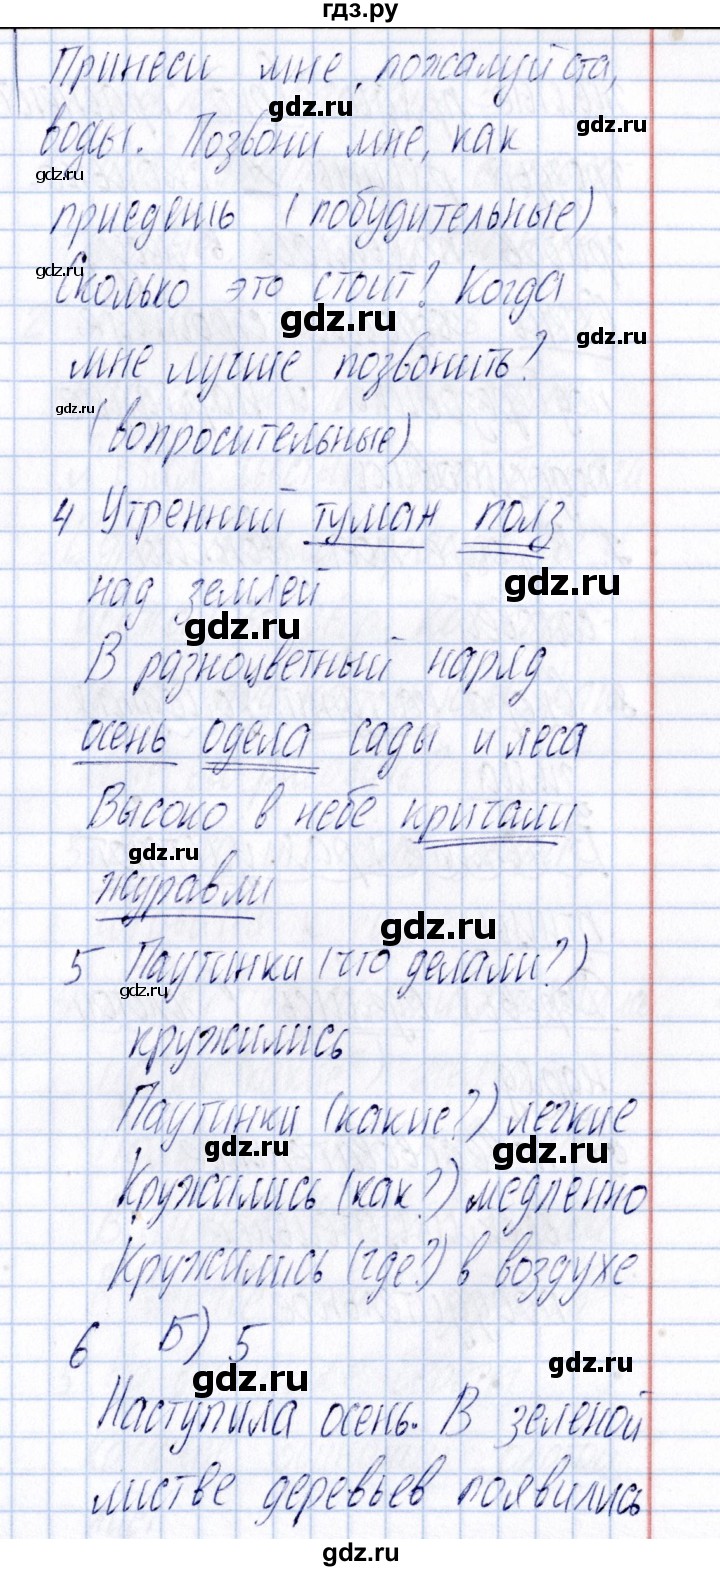 гдз.ру
Принеси мне, пожалуйста,
gdz.ru
gdz.ru
воды. Позвони мне, как
gdz.ru
приедешь (побудительные)
gdz.ru
Сколько это стоит? Когда
gdz.ru
gdz.ru
мне лучше позвонить?
gdz.ru
(вопросительные)
4 Утренний туман полз
gdz.ru
над землей
gdz.ru
В разноцветный наряд
осень одела сады и леса
Высоко в небе кричали
gdz.ru
журавли
gdz.ru
5 Паутинки (что делали?)
gdz.ru
кружились
Паутинки (какие?) легкие
gdz.ru
gdz.ru
Кружились (как?) медленно
Кружились (где?) в воздухе
6 Б) 5
gdz.ru
gdz.ru
Наступила осень. В зеленой
листве деревьев появились
gdz.ru